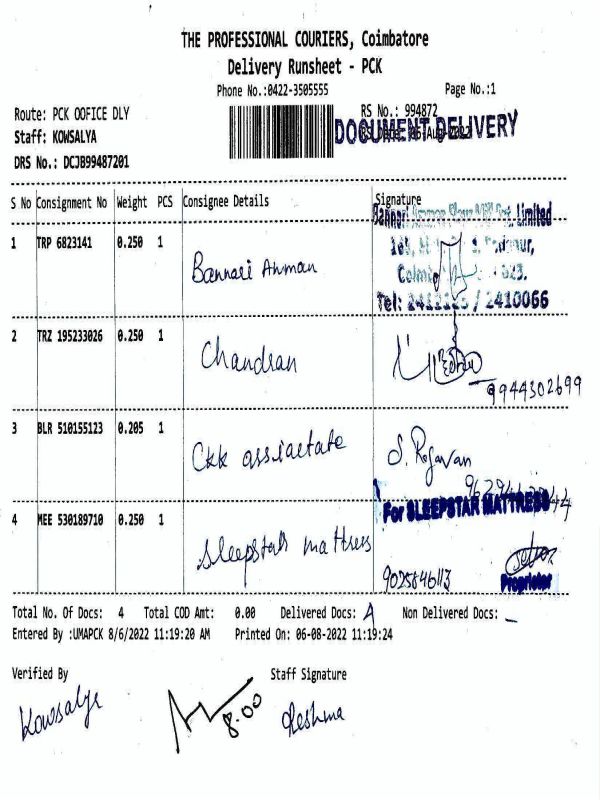 THE PROFESSIONAL COURIERS, Coimbatore
Delivery Runsheet - PCK
Phone No.:0422-3505555 Page No.:1
Route: PCK OOFICE DLY RS No.: 994872
Staff: KOWSALYA DOCUMENT DELIVERY
DRS No.: DCJB99487201
S No Consignment No Weight PCS Consignee Details Signature
Limited
1 TRP 6823141 0.250 1
Bannari Amman
Tel: / 2410066
2 TRZ 195233026 0.250 1
Chandran
9944302699
3 BLR 510155123 0.205 1
Ckk assiaetate S. Rajavan
For SLEEPSTAR MATTRESS
4 MEE 530189710 0.250 1
Sleepstar mattress
9025846113 Proprietor
Total No. Of Docs: 4 Total COD Amt: 0.00 Delivered Docs: 4 Non Delivered Docs: -
Entered By :UMAPCK 8/6/2022 11:19:20 AM Printed On: 06-08-2022 11:19:24
Verified By Staff Signature
Kowsalya 8.00 Reshma